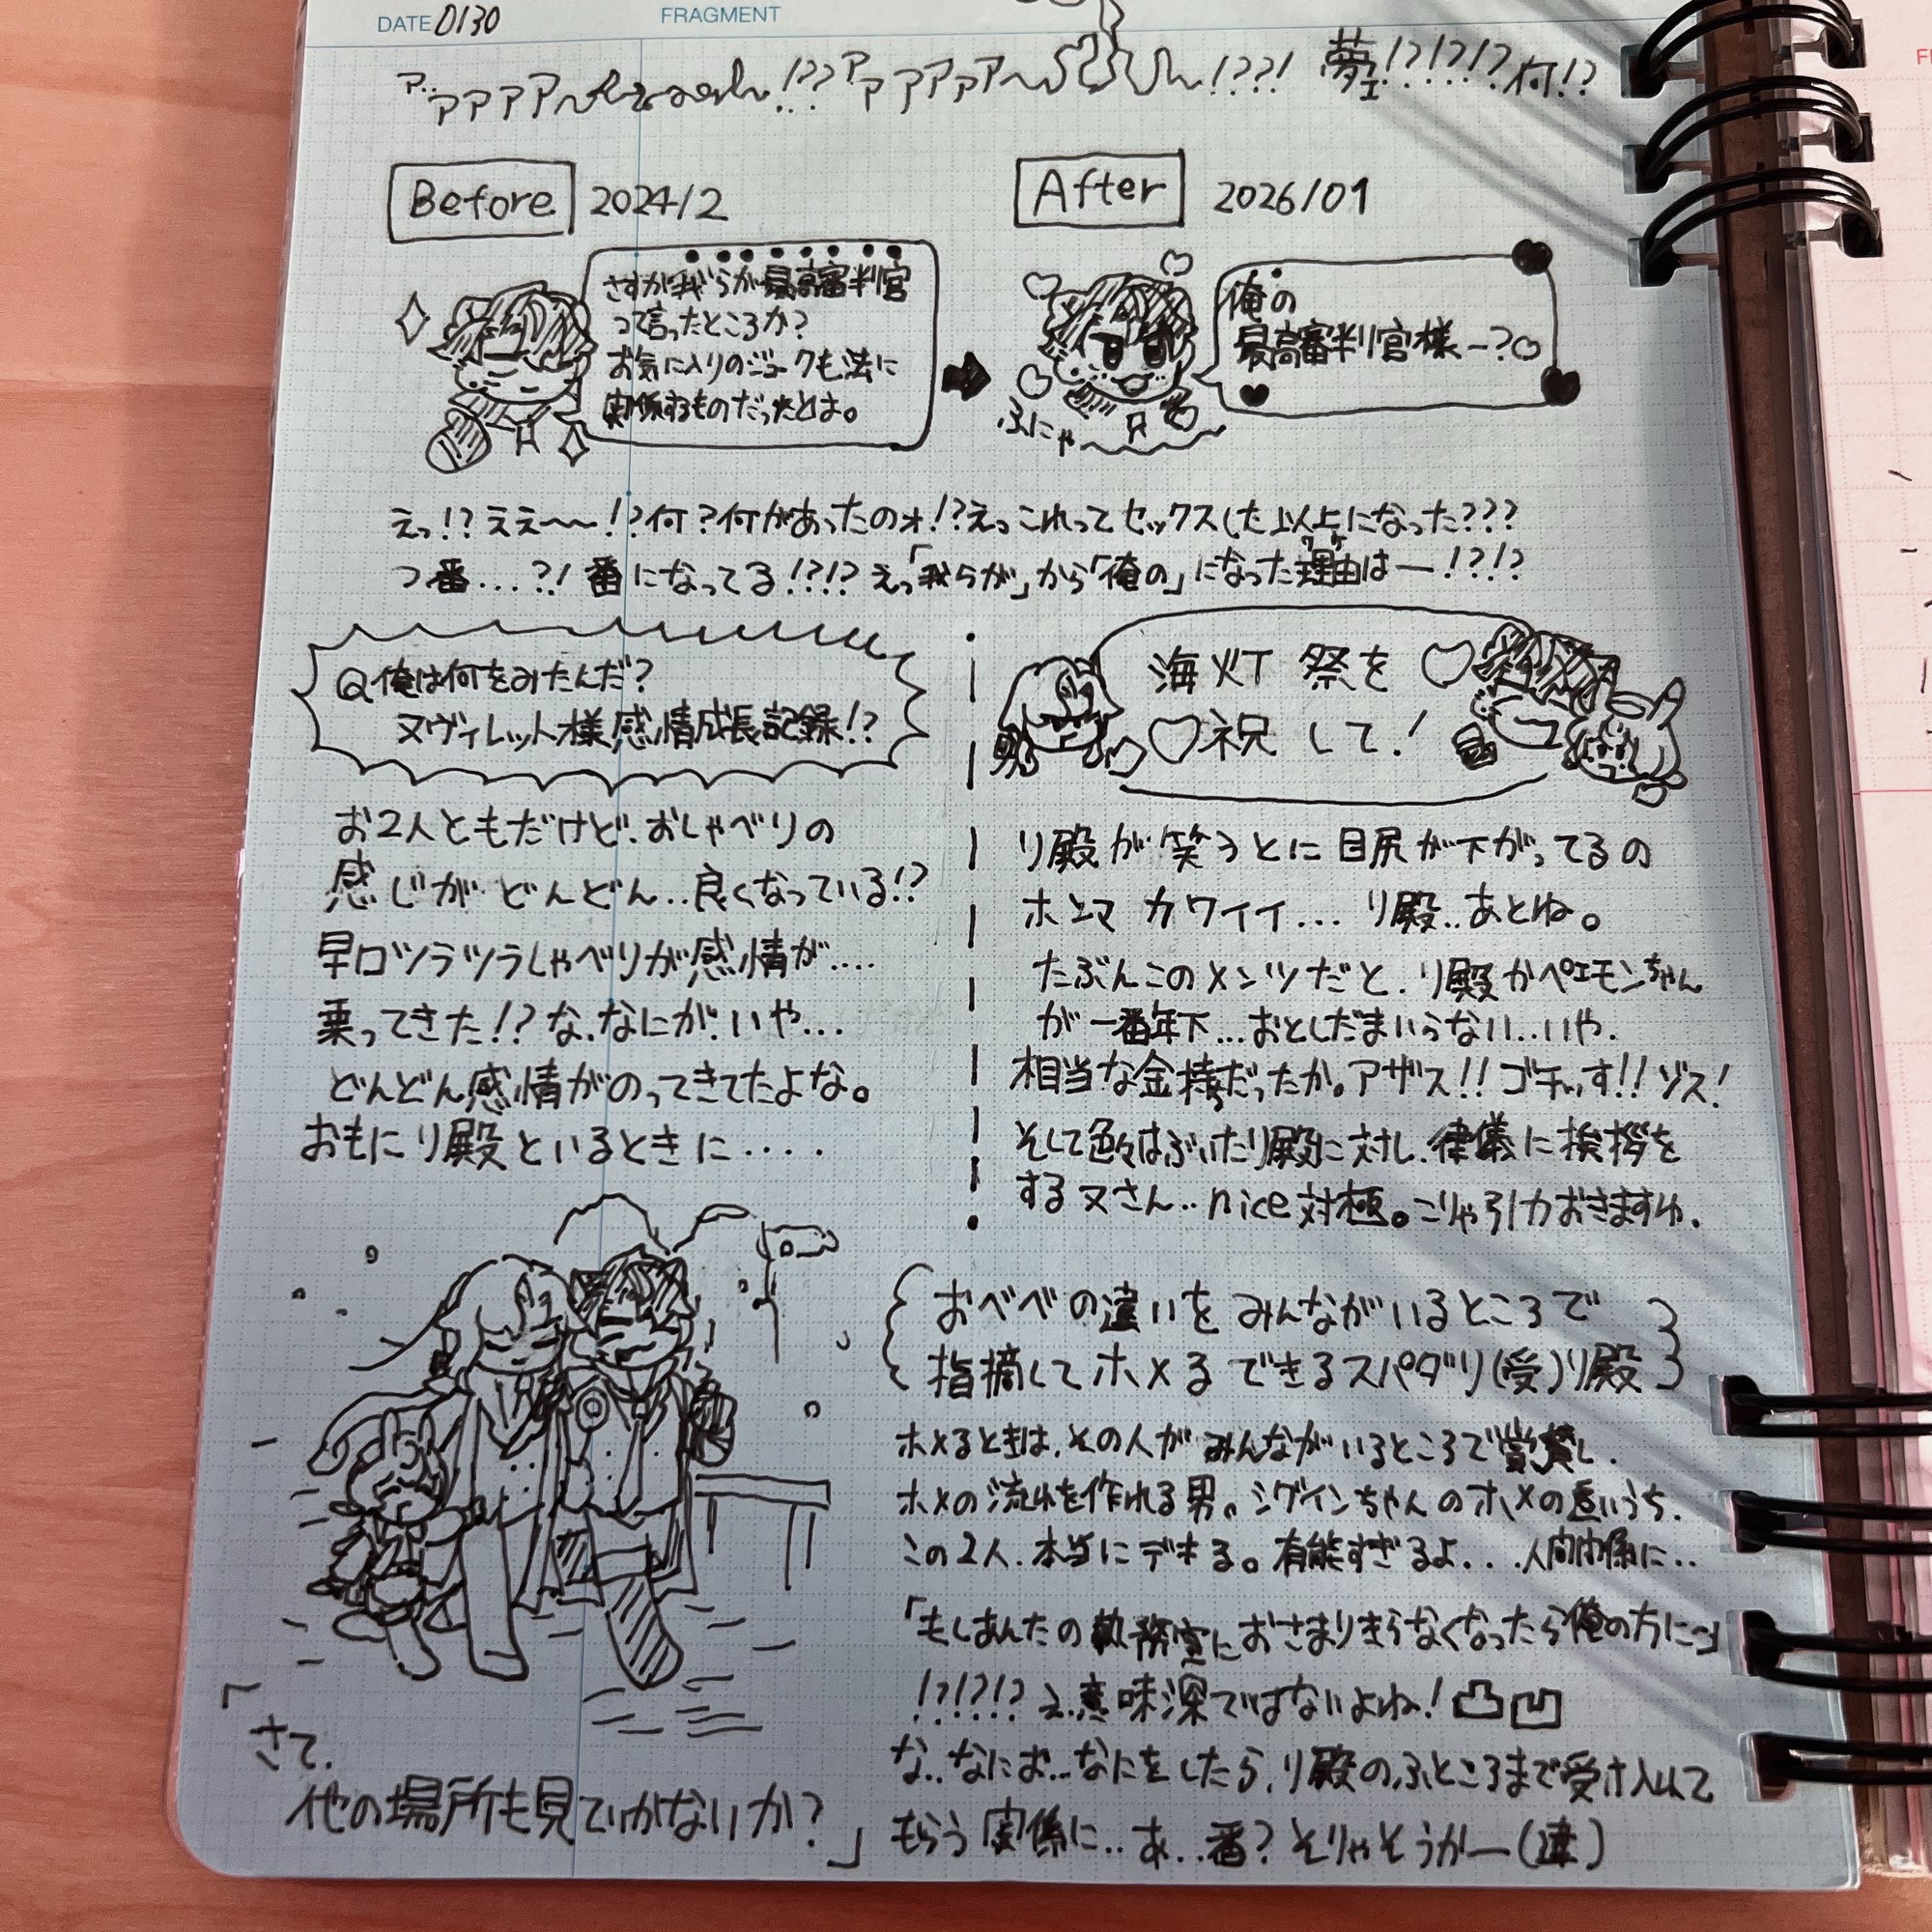 DATE 0130
FRAGMENT
夢!?!?!?何!?
Before 2024/2
After 2026/01
さすが我らが最高審判官
って言ったところか?
お気に入りのジョークも法に
関係するものだったとは。
俺の
最高審判官様ー?♡
ふにゃ〜
えっ!?ええ〜〜!?何?何があったのォ!?えっこれってセックスした以上になった???
つ番...?!番になってる!?!?えっ「我らが」から「俺の」になった理由はー!?!?
ワケ
Q俺は何をみたんだ?
ヌヴィレット様感情成長記録!?
海灯祭を♡
♡祝して!
お2人ともだけど、おしゃべりの
感じがどんどん..良くなっている!?
早口ツラツラしゃべりが感情が....
乗ってきた!?な、なにが、いや...
どんどん感情がのってきてたよな。
おもにリ殿といるときに....
リ殿が笑うとに目尻が下がってるの
ホンマカワイイ...リ殿..あとね。
たぶんこのメンツだと、リ殿かペエモンちゃん
が一番年下...おとしだまいらない...いや、
相当な金持だったか。アザス!!ゴチっす!!ゾス!
そして色々はぶいたリ殿に対し、律儀に挨拶を
するヌさん..nice対極。こりゃ引力おきますわ、
おべべの違いをみんながいるところで
指摘してホメるできるスパダリ(受)リ殿
ホメるときは、その人がみんながいるところで賞賛し、
ホメの流れを作れる男。シグインちゃんのホメの追いうち、
この2人、本当にデキる。有能すぎるよ...人間関係に..
「もしあんたの執務室におさまりきらなくなったら俺の方に〜」
!?!?!?え、意味深ではないよね!凸凹
な..なにお...なにをしたら、リ殿のふところまで受け入れて
もらう関係に..あ..番?そりゃそうかー(速)
「さて、
他の場所も見ていかないか?」